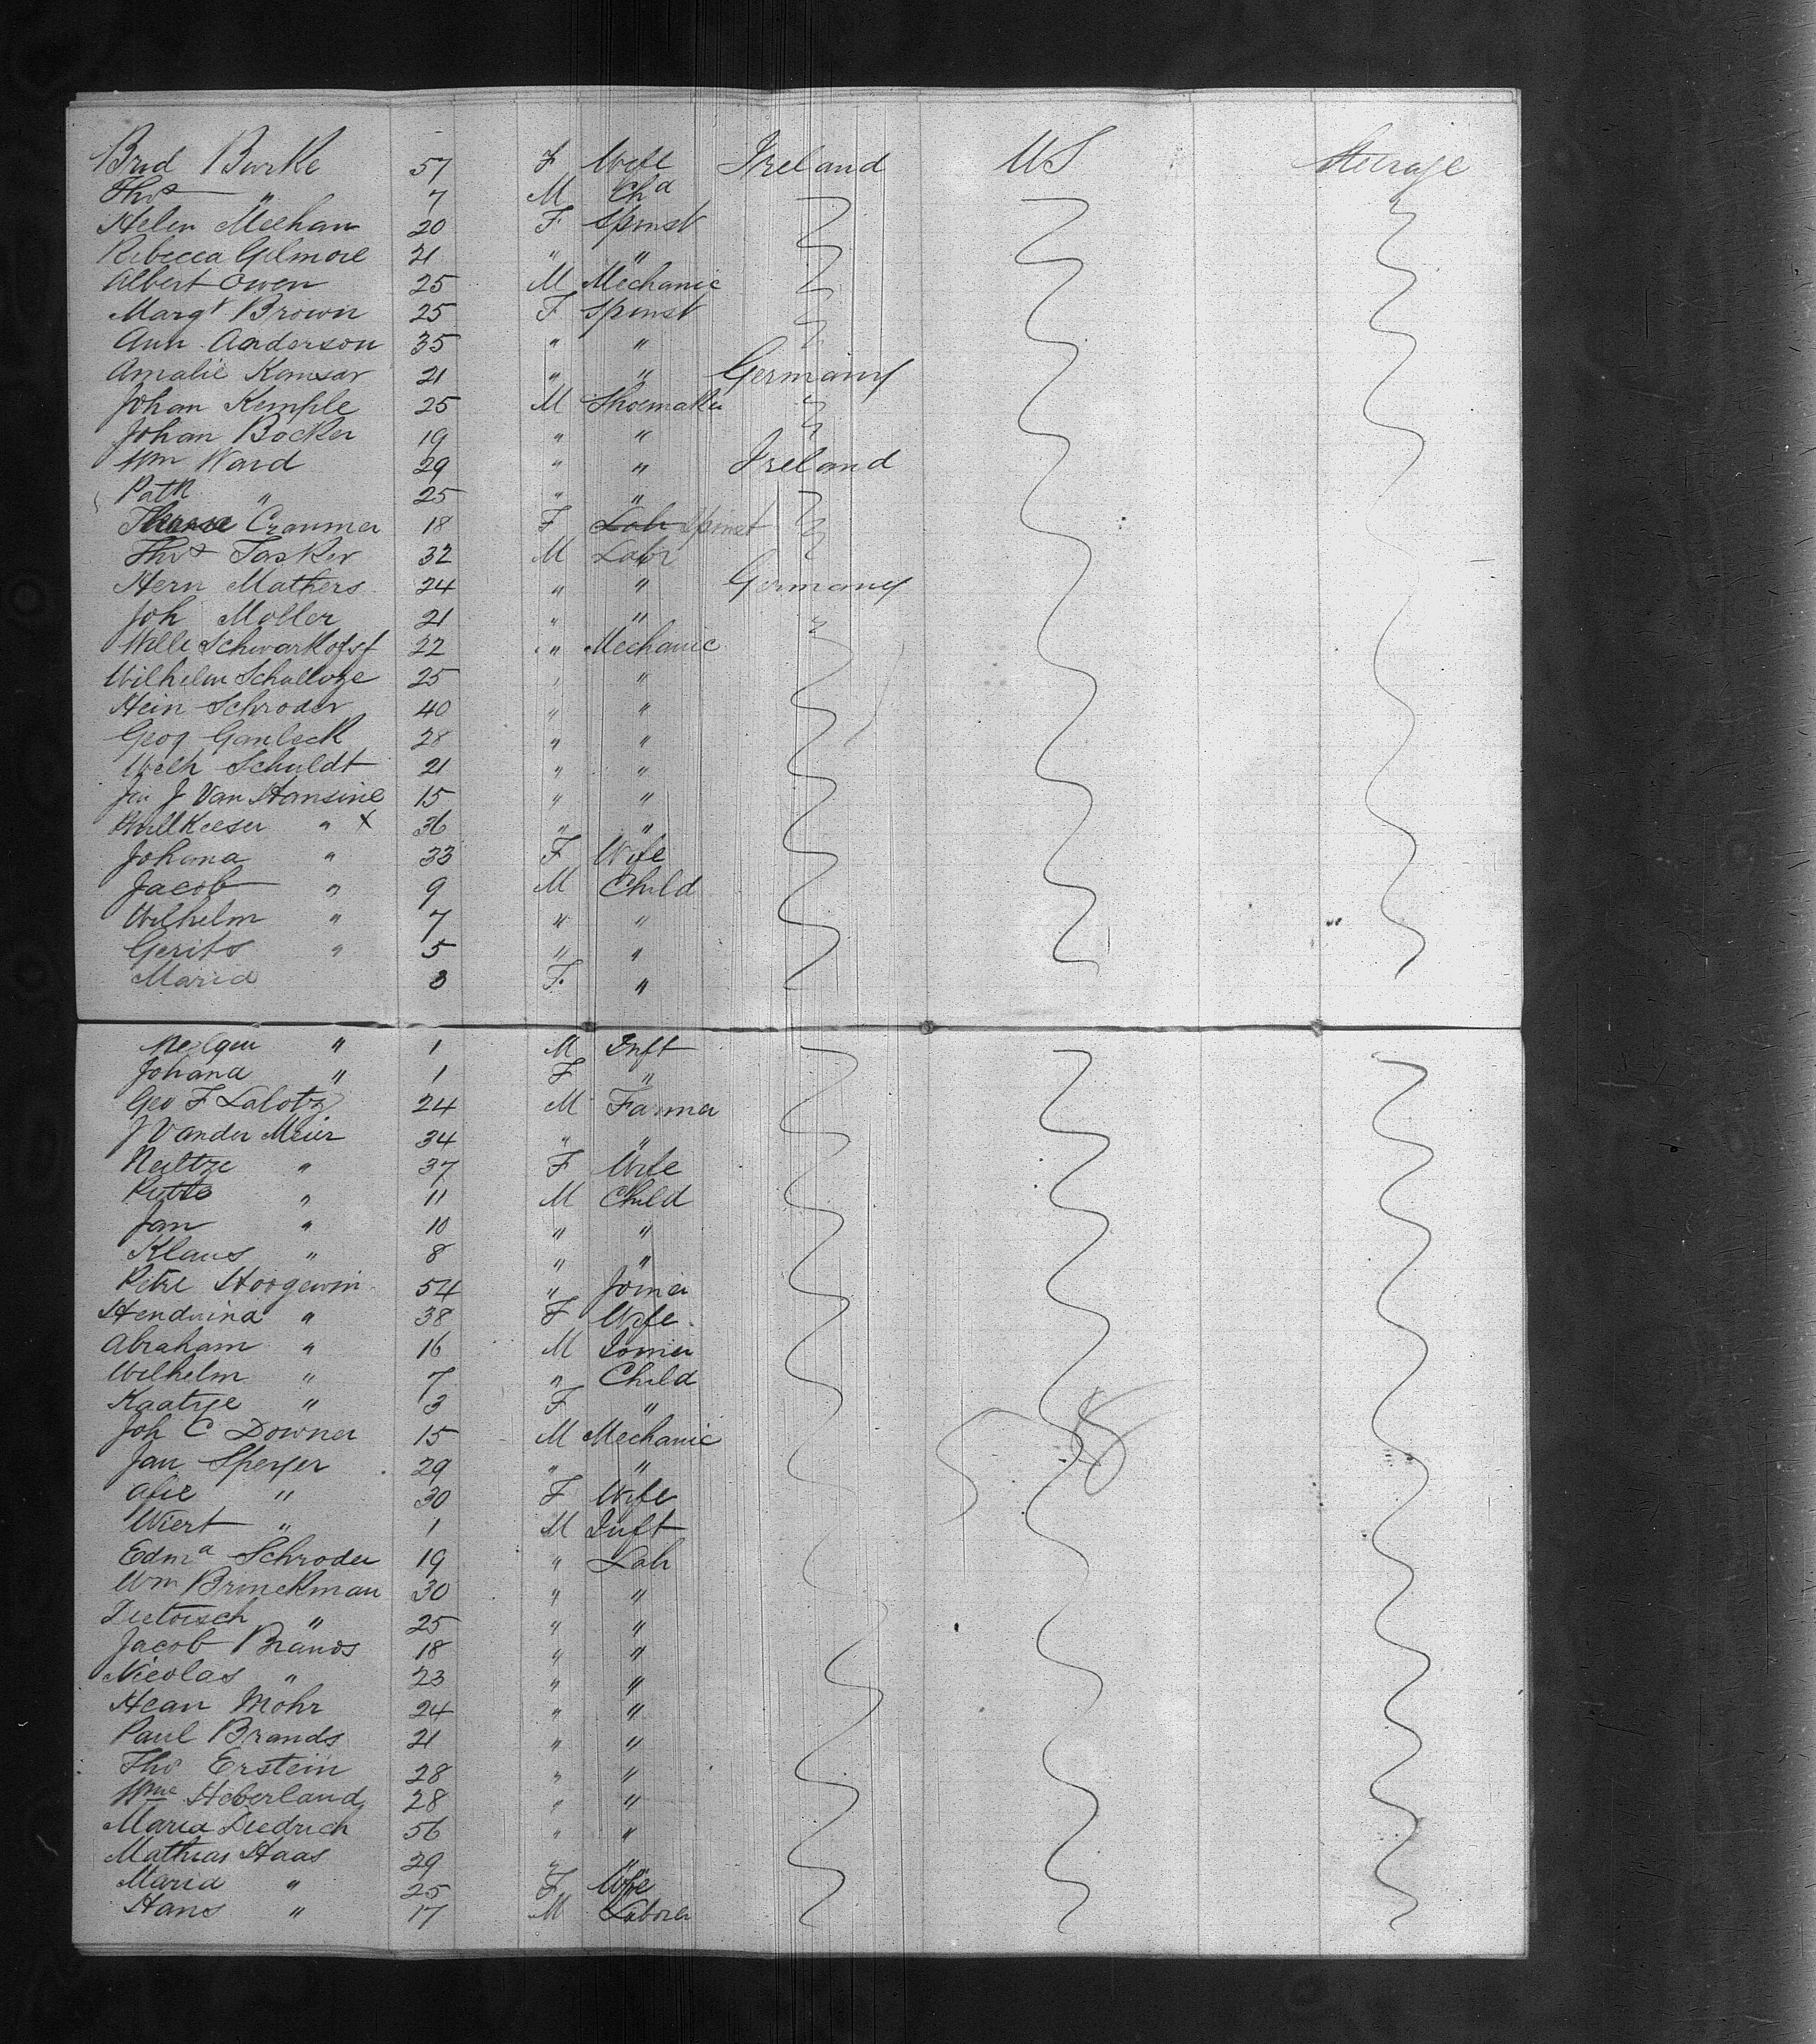 Brid Burke 57 F Wife Ireland US Steerage
Thos " 7 M Chd
Helen Meehan 20 F Spinst
Rebecca Gilmore 21 " "
Albert Owen 25 M Mechanic
Margt Brown 25 F Spinst
Ann Anderson 35 " "
Amalie Kamsar 21 " " Germany
Johan Kemple 25 M Shoemaker
Johan Bocker 19 " "
Wm Ward 29 " " Ireland
Patk " 25 " "
Cranmer 18 F Lab Spinst
Thos Tasker 32 M Labr
Hern Mathers 24 " " Germany
Joh Moller 21 " "
Wille Schwarkofsf 22 " Mechanic
Wilhelm 25 " "
Hein Schroder 40 " "
Geog Ganleck 28 " "
Welh Schuldt 21 " "
J Van Hansine 15 " "
" X 36 " "
Johana " 33 F Wife
Jacob " 9 M Child
Wilhelm " 7 " "
Gerits " 5 " "
Maria 3 F "
" 1 M Inft
Johana " 1 F "
Geo F Labotz 24 M Farmer
J Vander Meier 34 " "
Neeltze " 37 F Wife
" 11 M Child
Jan " 10 " "
Klaus " 8 " "
Petre Hoogewin 54 " Joiner
Hendrina " 38 F Wife
Abraham " 16 M Joiner
Wilhelm " 7 " Child
Kaatye " 3 F "
Joh C Downer 15 M Mechanic
Jan Speyer 29 " "
Afie " 30 F Wife
Wiert " 1 M Inft
Edma Schroder 19 " Lab
Wm Brinckman 30 " "
" 25 " "
Jacob Brands 18 " "
Nicolas " 23 " "
Hean Mohr 24 " "
Paul Brands 21 " "
Thos Erstein 28 " "
Heberland 28 " "
Maria Diedrich 56 " "
Mathias Haas 29 " "
Maria " 25 F Wife
Hans " 17 M Laborer